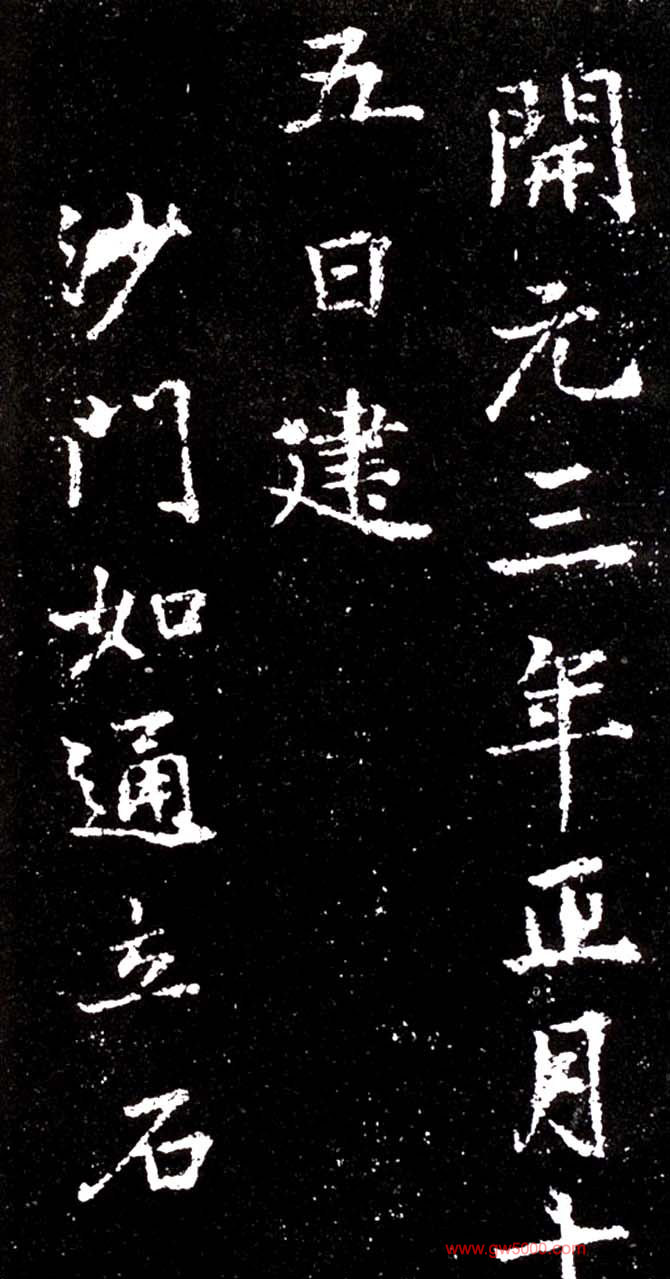 開元三年正月十
五日建
沙門如通立石
www.gw5000.com